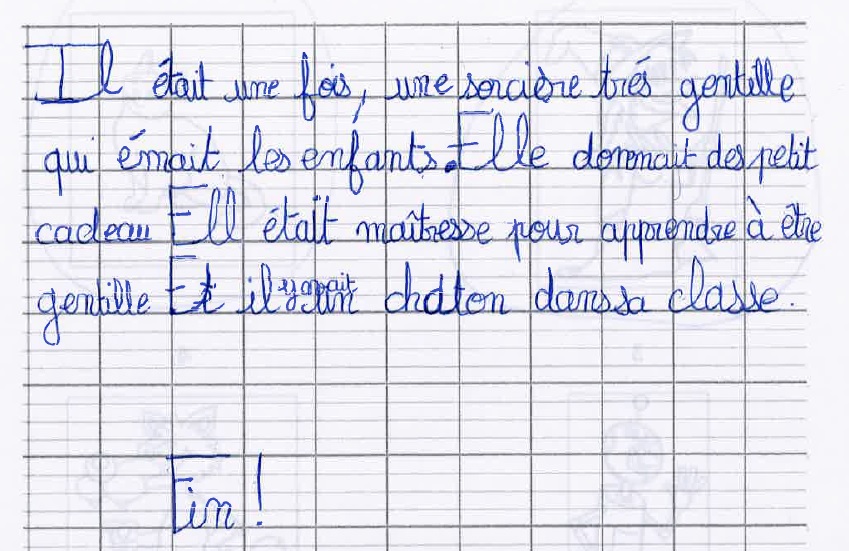 Il était une fois, une sorcière trés gentille
qui émait les enfants. Elle donnait des petit
cadeau Ell était maîtresse pour apprendre à être
gentille Et il y avait un chaton dans sa classe.
Fin !